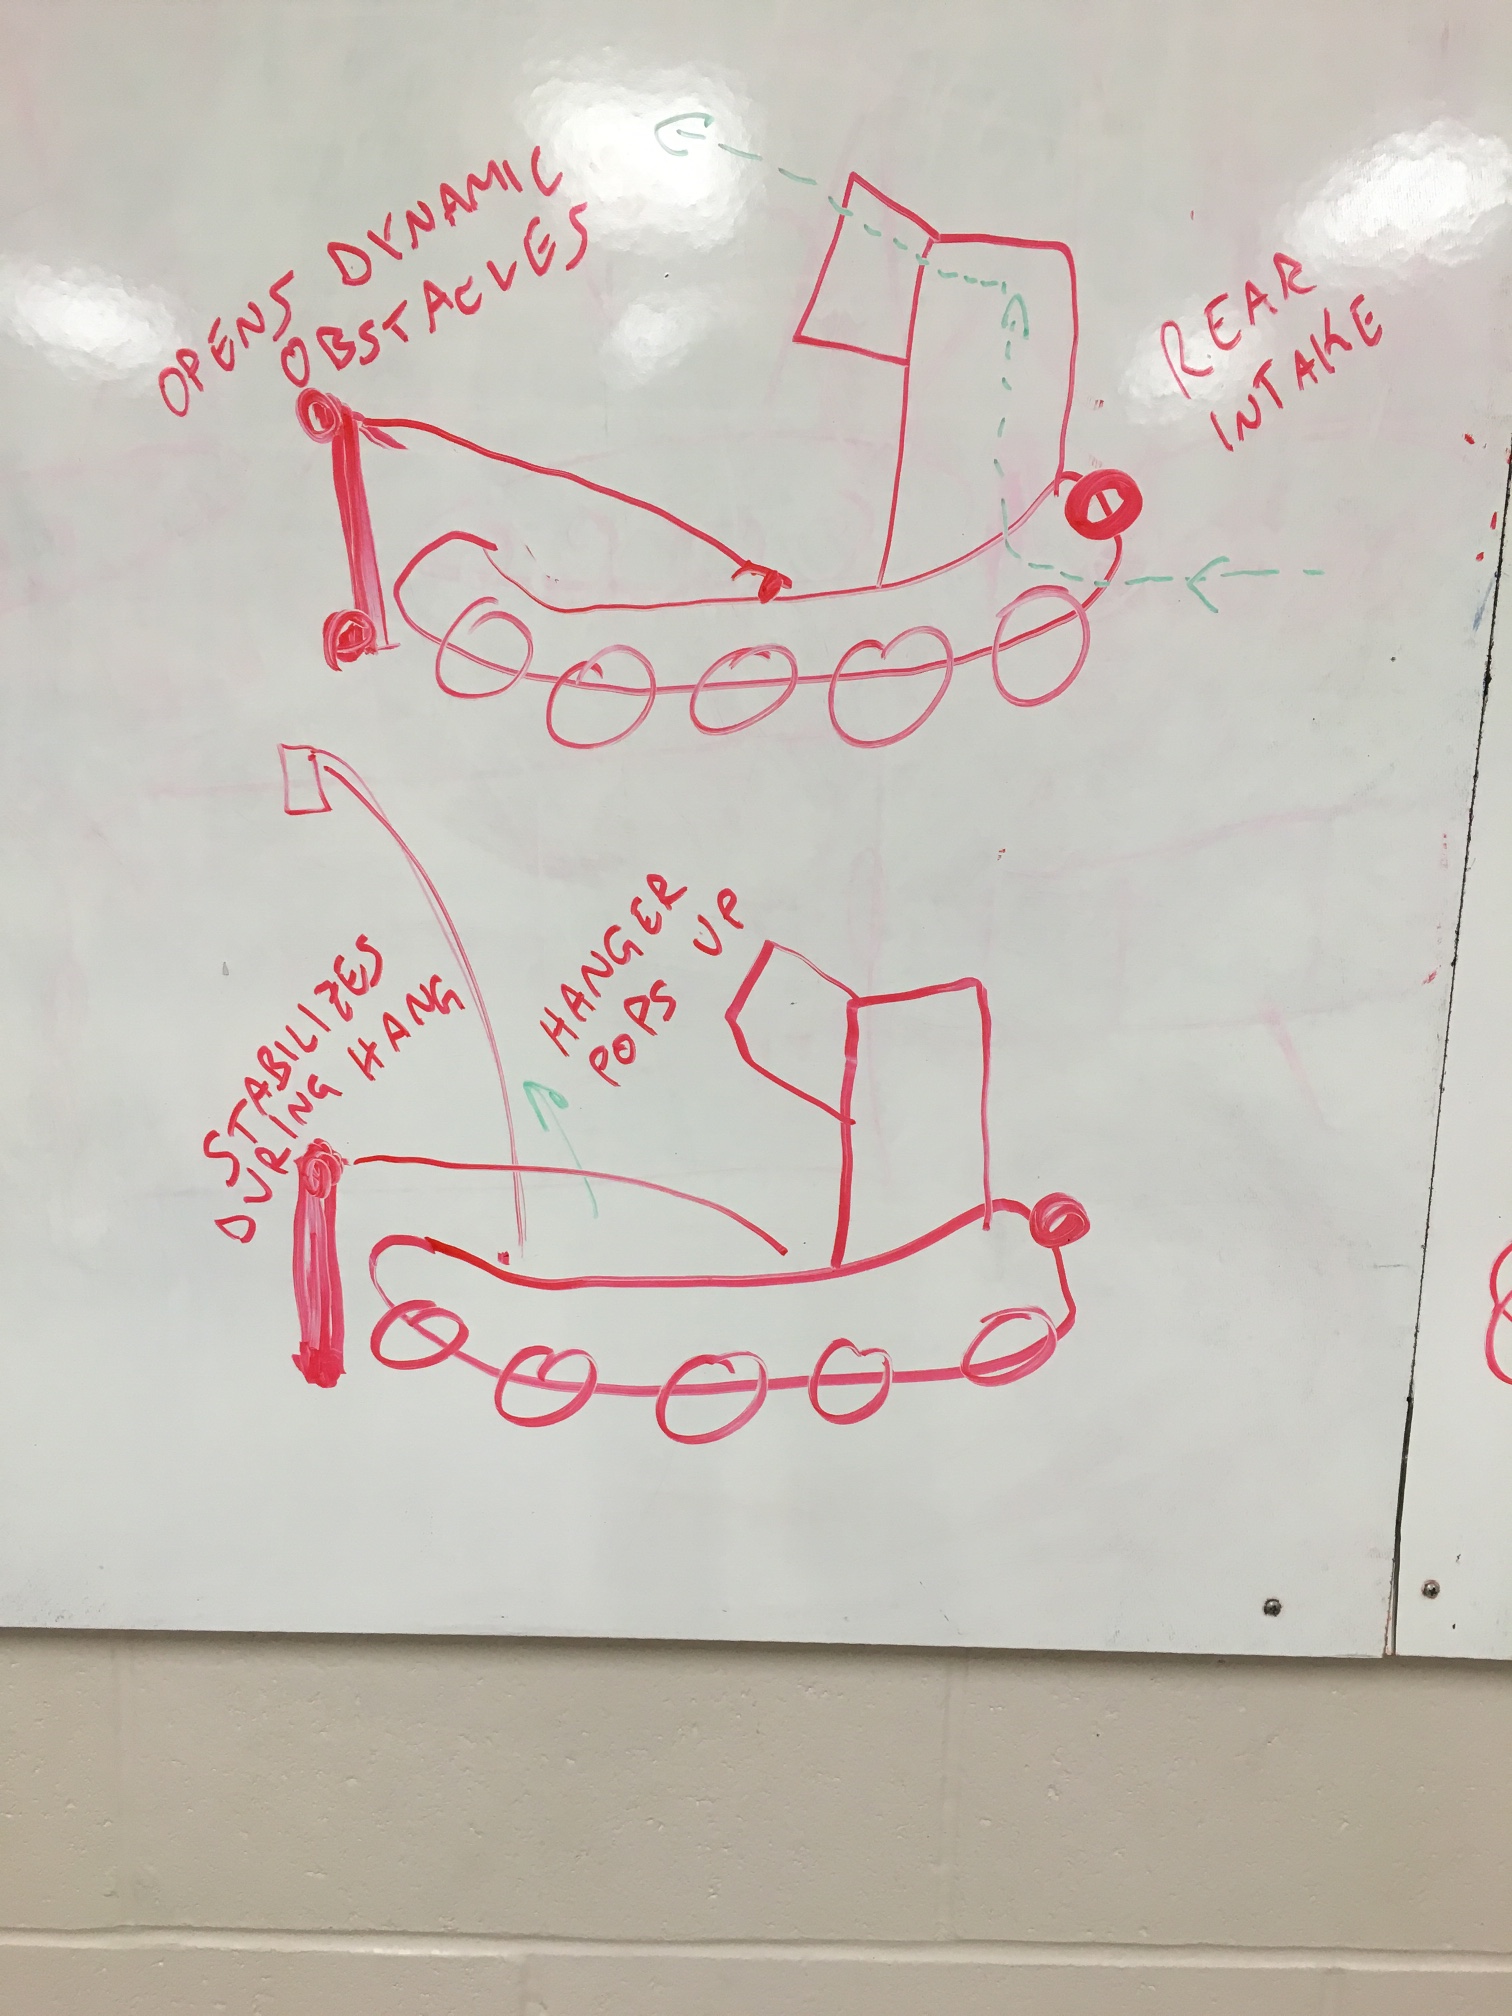 OPENS DYNAMIC
OBSTACLES
REAR
INTAKE
STABILIZES
DURING HANG
HANGER
POPS UP